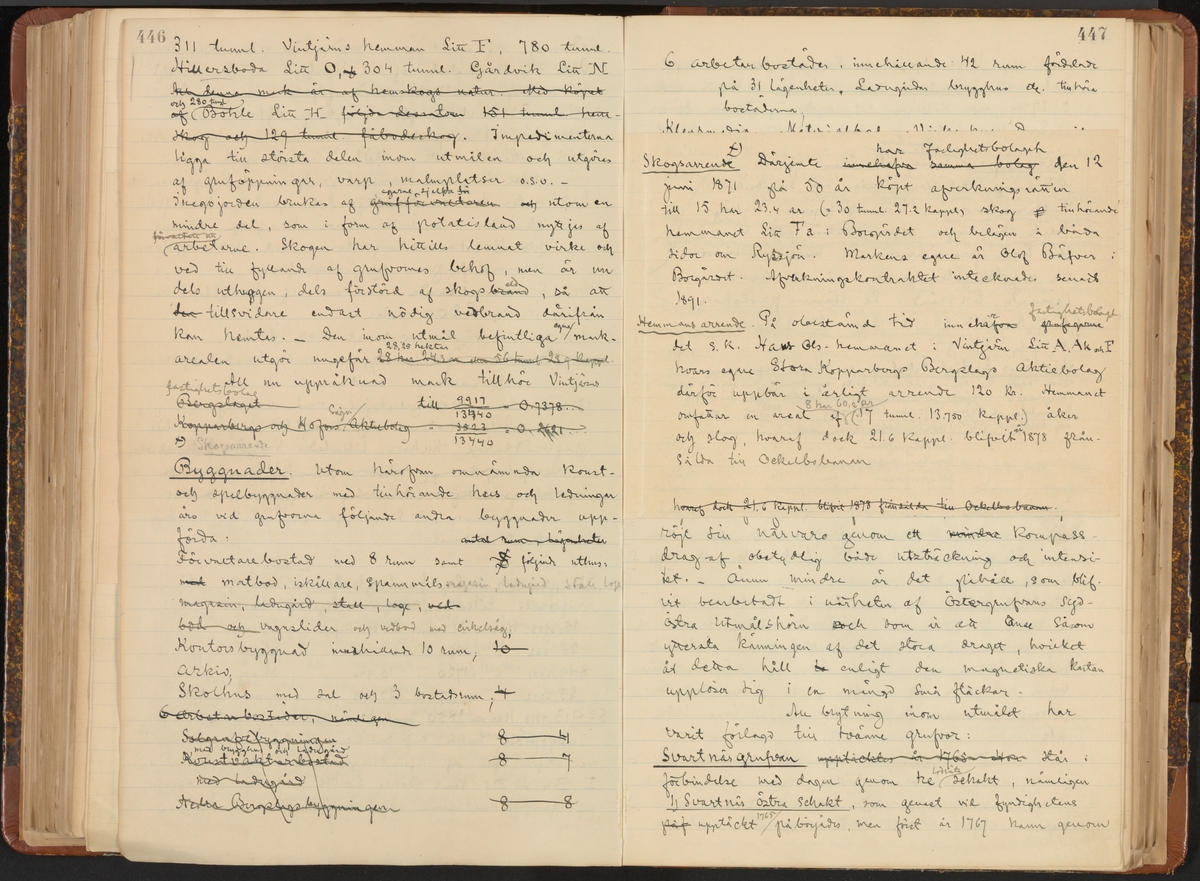 446
311 tunnl. Vintjärns hemman Litt F, 780 tunnl.
Hillersboda Litt O, 304 tunnl. Gårdvik Litt N
denna mark är af hemskogs natur. Med köpet
och 280 tunl
af Böhle Litt H följde dessutom 151 tunnl hem-
skog och 129 tunnl fäbodeskog. Impedimenterna
ligga till största delen inom utmålen och utgöres
af gruföppningar, varp, malmplatser o.s.v. –
egarne sjelfva
Inegojorden brukas af grufförvaltaren och utom en
mindre del, som i form af potatisland nyttjes af
arbetarne. Skogen har hittills lemnat virke och
ved till fyllande af grufvornas behof, men är nu
eld
dels uthuggen, dels förstörd af skogsbrand, så att
den tillsvidare endast nödig vedbrand därifrån
egna
kan hemtas. – Den inom utmål befintliga mark-
arealen utgör ungefär
All nu uppräknad mark tillhör Vintjärns
fastighetsbolag
Bergslaget till 9917/13740 = 0.7378..
Kopparbergs och Hofors Sågv. Aktiebolag - 3823/13740 = 0.2621..
Skogsarrende
Byggnader. Utom härofvan omnämnda konst-
och spelbyggnader med tillhörande hus och ledningar
äro vid grufvorna följande andra byggnader upp-
förda: antal rum, lägenheter
Förvaltarebostad med 8 rum samt följande uthus:
med matbod, iskällare, spannmåls magasin, ladugård, stall, loge
magasin, ladugård, stall, loge, ved-
bod och vagnslider och vedbod med cirkelsåg,
Kontorsbyggnad innehållande 10 rum, 10
Arkiv,
Skolhus med sal och 3 bostadsrum, 4
6 arbetarbostäder, nämligen
Salgrufvebyggningen 8 — 4
med brygghus och ladugård
Konstvaktarbostad 8 — 7
med ladugård
Nedra Bergslagsbyggningen 8 — 8
447
6 arbetarbostäder, innehållande 42 rum fördelade
på 31 lägenheter. Ladugårdar brygghus etc. tillhöra
bostäderna,
har Fastighetsbolaget
Skogsarrende Därjemte innehafva samma bolag den 12
juni 1871 på 50 år köpt afverkningsrätten
till 15 har 23.4 ar (= 30 tunnl. 27.2 kappl.) skog tillhörande
hemmanet Litt Fa i Borgärdet och belägen å båda
sidor om Ryssjön. Markens egare är Olof Båfver i
Borgärdet. Afverkningskontraktet intecknades senast
1891.
fastighetsbolaget
Hemmansarrende. På obestämd tid innehafva grufegarne
det s.k. Hans Ols-hemmanet i Vintjärn Litt A. Ak och F
hvars egare Stora Kopparbergs Bergslags Aktiebolag
därför uppbär i årligt arrende 120 kr. Hemmanet
8 har 60,2 ar
omfattar en areal af (17 tunnl. 13.750 kappl.) åker
och slog, hvaraf dock 21.6 kappl. blifvit år 1878 från-
sålda till Ockelbobanan
hvaraf dock 21.6 kappl. blifvit 1878 frånsålda till Ockelbobanan.
röjt sin närvaro genom ett mindre kompass-
drag af obetydlig både utsträckning och intensi-
tet. – Ännu mindre är det jernhåll, som blif-
vit bearbetadt i närheten af Östergrufvans syd-
östra utmålshörn och som är att anse såsom
yttersta känningen af det stora draget, hvilket
åt detta håll enligt den magnetiska kartan
upplöser sig i en mängd små fläckar.
All brytning inom utmålet har
varit förlagd till tvänne grufvor:
Svartnäsgrufvan upptäcktes år 1765 står i
förbindelse med dagen genom tre schakt, nämligen
1) Svartnäs östra schakt, som genast vid fyndighetens
upptäckt 1765 påbörjades, men först år 1767 hann genom